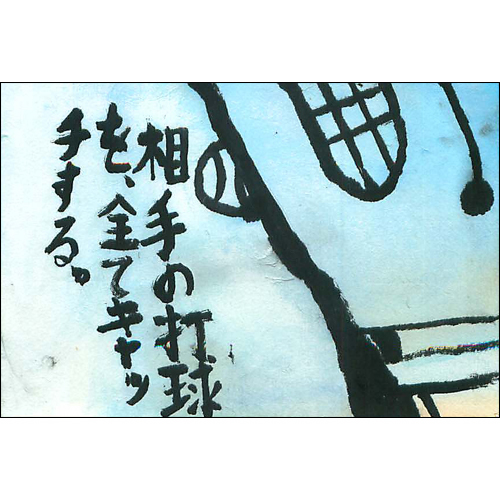 相手の打球
を、全てキャッ
チする。